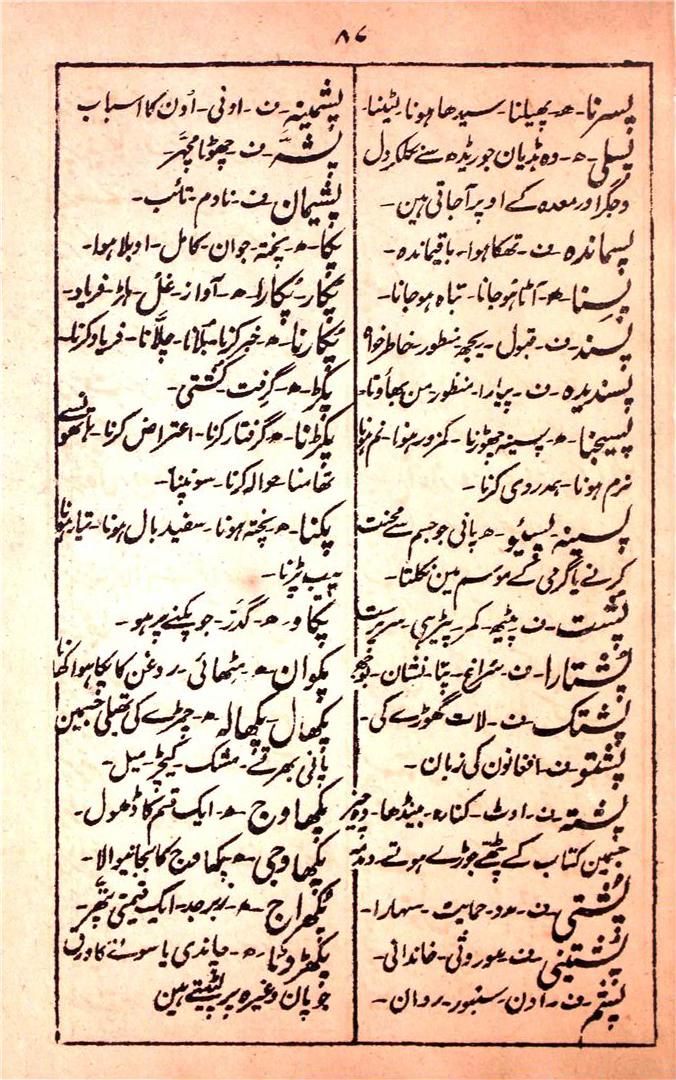 ۸۷
پسرنا۔ ھ۔ پھیلنا۔ سیدھا ہونا۔ لیٹنا۔
پسلی۔ ھ۔ وہ ہڈیان جو ریڈہ سے نکلکر دل
و جگر اور معدہ کے اوپر آجاتی ہین۔
پسماندہ۔ ف۔ تھکا ہوا۔ باقیماندہ۔
پِسنا۔ ھ۔ آٹا ہوجانا۔ تباہ ہوجانا۔
پسند۔ ف۔ قبول۔ ریجھ۔ منظور۔ خاطر خواہ
پسندیدہ۔ ف۔ پیارا۔ منظور۔ من بھاؤنا۔
پسیجنا۔ ھ۔ پسینہ چھوڑنا۔ کمزور ہونا۔ نم ہونا
نرم ہونا۔ ہمدردی کرنا۔
پسینہ۔ پسیئو۔ ھ۔ پانی جو جسم سے محنت
کرنے یا گرمی کے موسم مین نکلتا۔
پشت۔ ف۔ پیٹھ۔ کمر۔ پیڑہی۔ سرپرست
پُشتارا۔ ف۔ سُراغ۔ پتا۔ نشان۔ بوجھ
پشتک۔ ف۔ لات گھوڑے کی۔
پشتو۔ ف۔ افغانون کی زبان۔
پشتہ۔ ف۔ اوٹ۔ کنارہ۔ مینڈھا۔ وہ چیز
جسمین کتاب کے پٹھے جوڑے ہوتے۔ دمدمہ
پُشتی۔ ف۔ مدد۔ حمایت۔ سہارا۔
پُشتینی۔ ف۔ موروثی۔ خاندانی۔
پشم۔ ف۔ اون۔ سنبور۔ روان۔
پشمینہ۔ ف۔ اونی۔ اُون کا اسباب
پشہ۔ ف۔ چھوٹا مچھر۔
پشیمان۔ ف۔ نادم۔ تائب۔
پکا۔ ھ۔ پختہ۔ جوان۔ کامل۔ اوبلا ہوا۔
پُکار۔ پُکارا۔ ھ۔ آواز۔ غل۔ ہڑ۔ فریاد۔
پُکارنا۔ ھ۔ خبر کرنا۔ بُلانا۔ چِلّانا۔ فریاد کرنا۔
پکڑ۔ ھ۔ گرفت۔ کُشتی۔
پکڑنا۔ ھ۔ گرفتار کرنا۔ اعتراض کرنا۔ ہاتھونسے
تھامنا۔ حوالہ کرنا۔ سونپنا۔
پکنا۔ ھ۔ پختہ ہونا۔ سفید بال ہونا۔ تیار ہونا
پیپ پڑنا۔
پکاو۔ ھ۔ گدّر۔ جو پکنے پر ہو۔
پکوان۔ ھ۔ مٹھائی۔ روغن کا پکا ہوا کھانا
پکھال۔ پکھالہ۔ ھ۔ چمڑے کی تھیلی جسمین
پانی بھرتے۔ مشک۔ کیچڑ۔ میل۔
پکھاوج۔ ھ۔ ایک قسم کا ڈھول۔
پکھاوجی۔ ھ۔ پکھاوج کا بجانیوالا۔
پُکھراج۔ ھ۔ زبرجد۔ ایک قیمتی پتھر۔
پکھڑوٹا۔ ھ۔ چاندی یا سونے کا ورق
جو پان وغیرہ پر لپیٹتے ہین